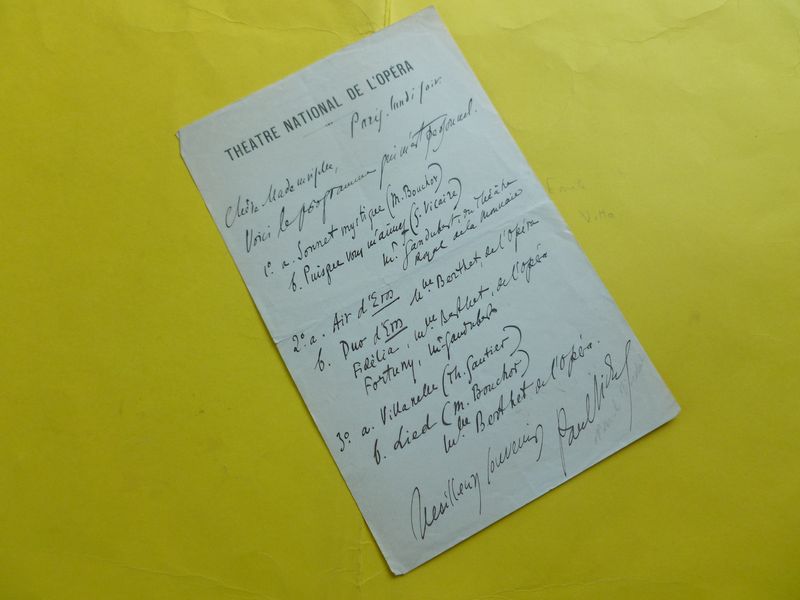 THEATRE NATIONAL DE L'OPÉRA
Paris, lundi soir.
Chère Mademoiselle,
Voici le programme qui m'est personnel.
1º. a. Sonnet mystique (M. Bouchor)
b. Puisque vous m'aimez (G. Vicaire)
Mr. Gandubert, du Théâtre
Royal de la Monnaie
2º. a. Air d'Eros Mme Berthet, de l'Opéra
b. Duo d'Eros
Fidélia, Mme Berthet, de l'Opéra
Fortuny, Mr Gandubert
3º. a. Villanelle (Th. Gautier)
b. Lied (M. Bouchor)
Mme Berthet de l'Opéra.
Meilleurs souvenirs
Paul Vidal